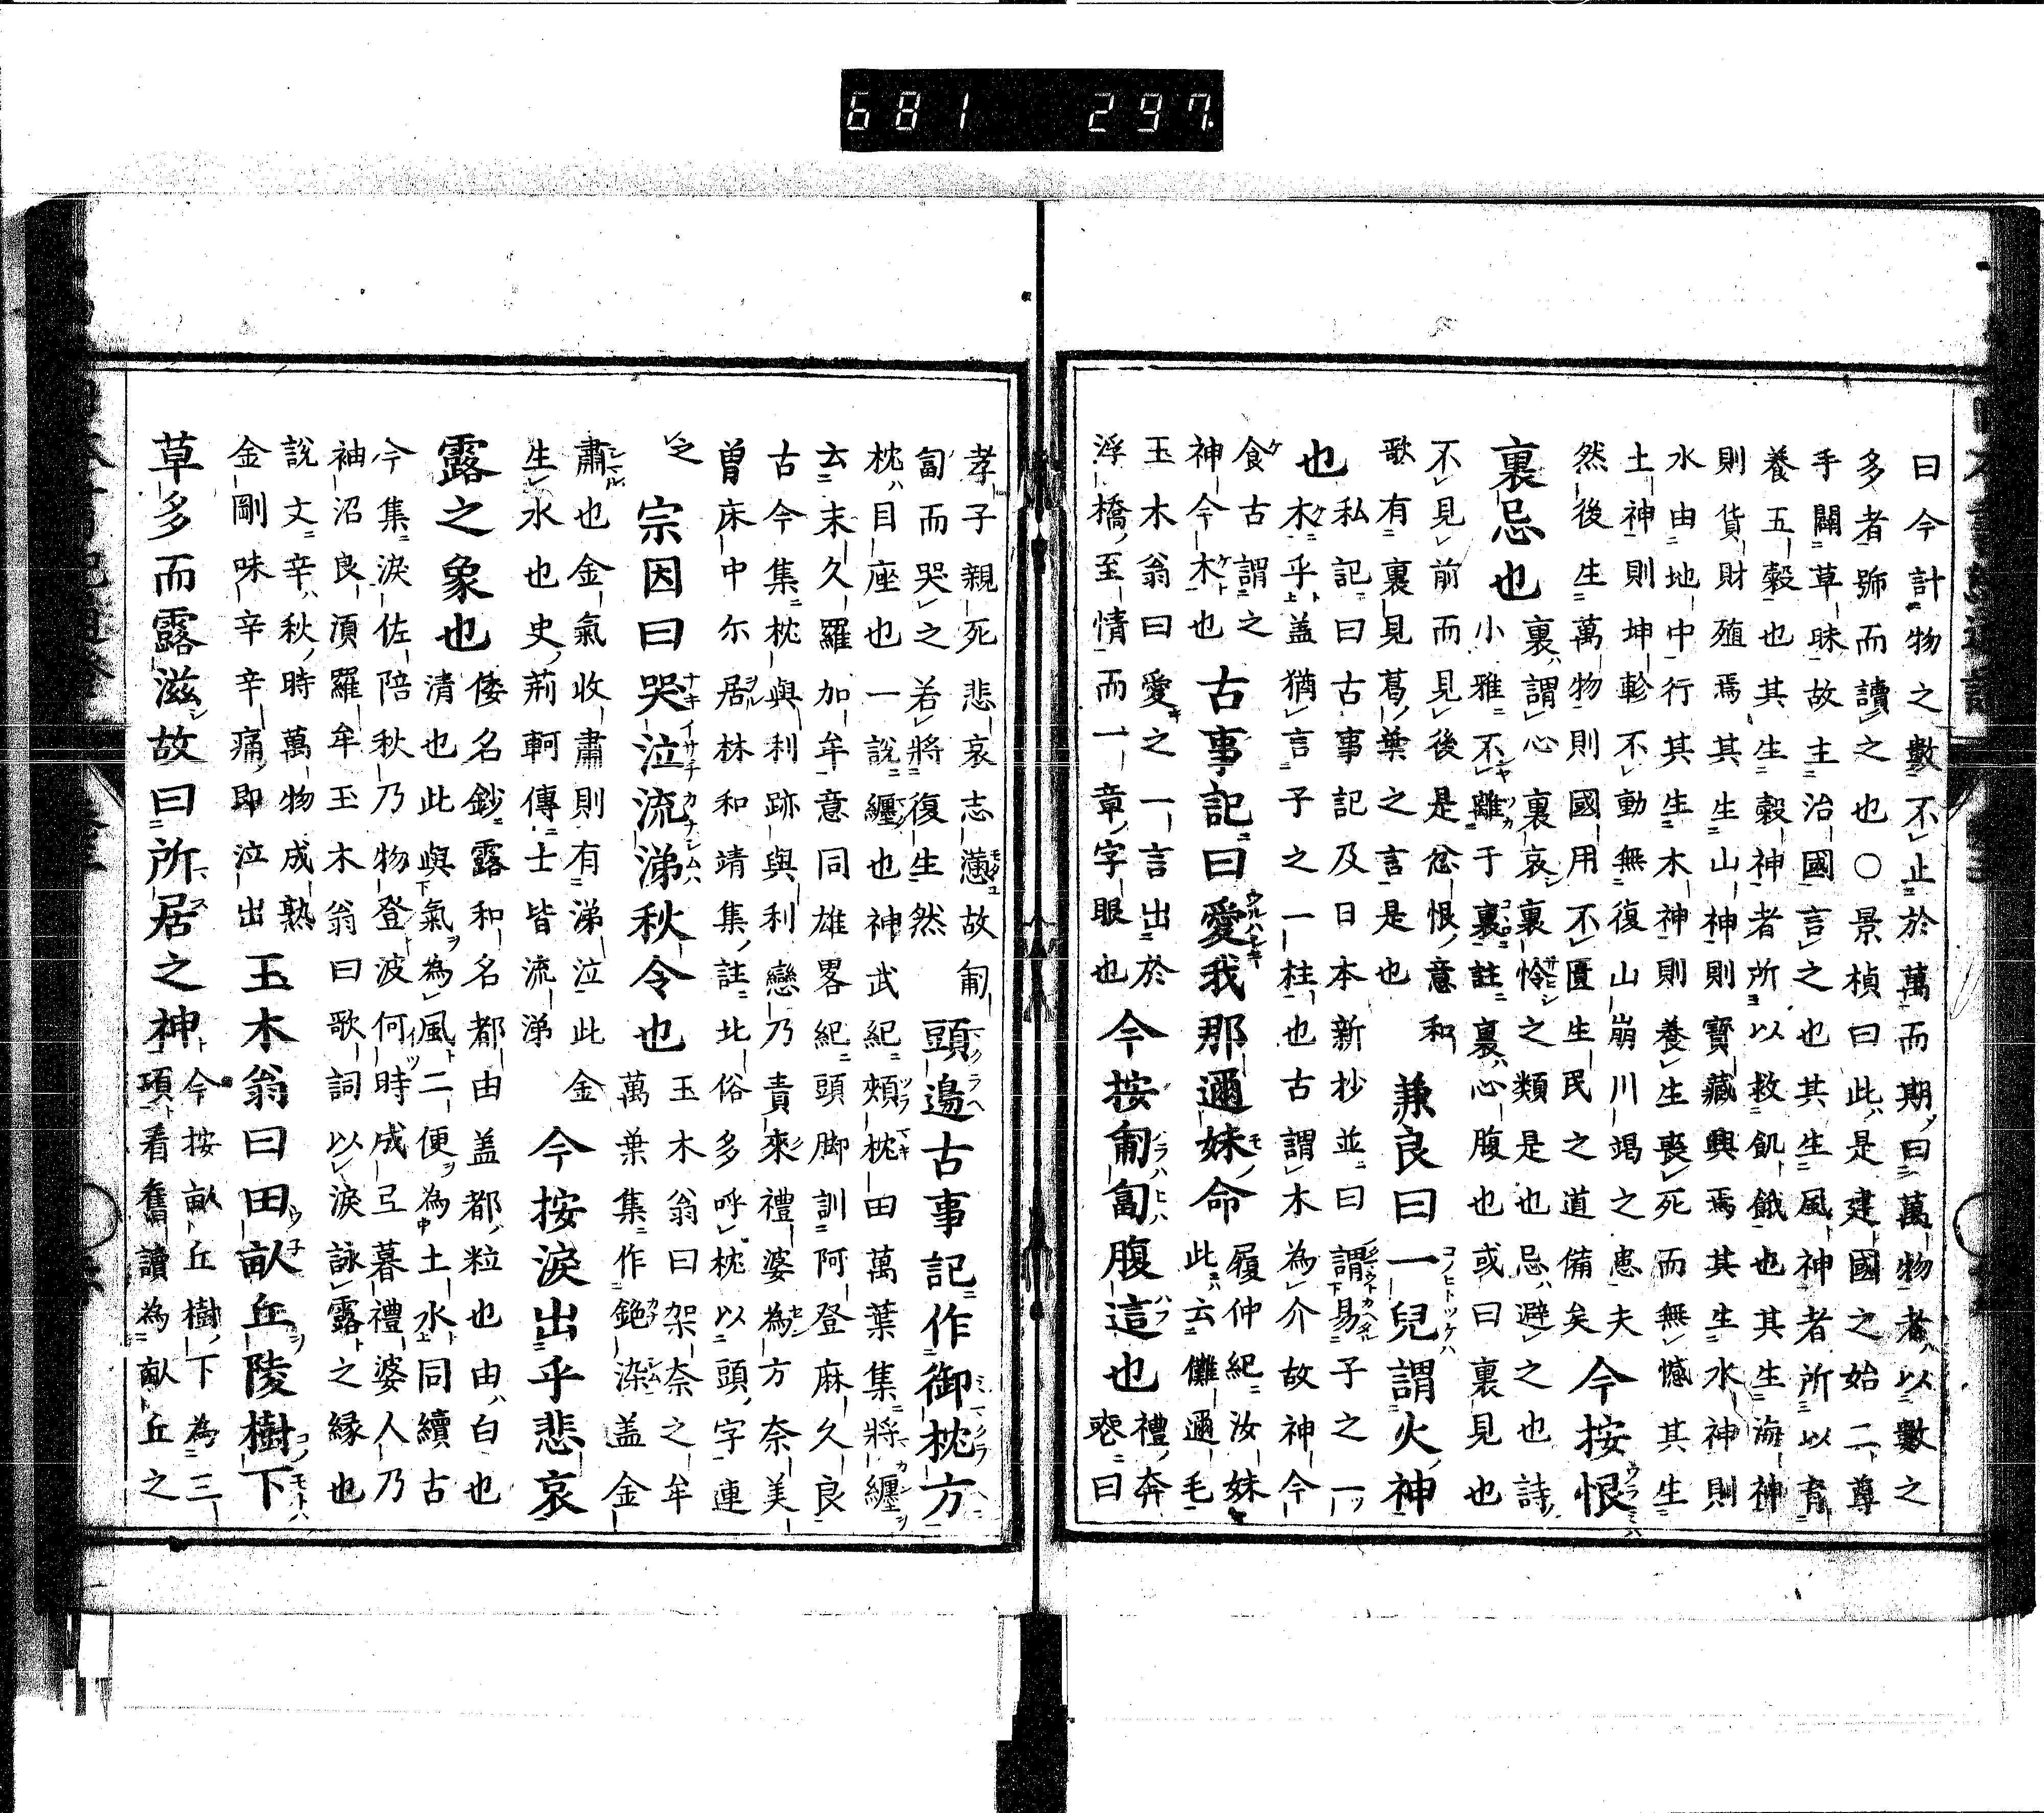 681 297
曰今計物之數不止於萬而期曰萬物者以數之
多者號而讀之也○景楨曰此是建國之始二尊
手闢草昧故主治國言之也其生風神者所以育
養五穀也其生穀神者所以救飢餓也其生海神
則貨財殖焉其生山神則寶藏興焉其生水神則
水由地中行其生木神則養生喪死而無憾其生
土神則坤軫不動無復山崩川竭之患夫
然後生萬物則國用不匱生民之道備矣
今按恨
裏忌也
裏謂心裏哀裏怜之類是也忌避之也詩
小雅不離于裏註裏心腹也或曰裏見也
不見前而見後是忿恨意和
歌有裏見葛葉之言是也
兼良曰一兒謂火神
也
私記曰古事記及日本新抄並曰謂易子之一
木乎盖猶言子之一柱也古謂木為介故神今
食古謂之
神今木也
古事記曰愛我那邇妹命
履仲紀汝妹
此云儺邇毛
玉木翁曰愛之一言出於
浮橋至情而一章字眼也
今按匍匐腹這也
禮奔
喪曰
孝子親死悲哀志懣故匍
匐而哭之若將復生然
頭邊古事記作御枕方
枕目座也一說纏也神武紀頰枕田萬葉集將纏
云末久羅加牟意同雄畧紀頭脚訓阿登麻久良
古今集枕與利跡與利戀乃責來禮婆為方奈美
曽床中尓居林和靖集註北俗多呼枕以頭字連
之
宗因曰哭泣流涕秋令也
玉木翁曰架奈之牟
萬葉集作𫃠染盖金
肅也金氣收肅則有涕泣此金
生水也史荊軻傳士皆流涕
今按淚出乎悲哀
露之象也
倭名鈔露和名都由盖都粒也由白也
清也此與氣為風二便為土水同續古
今集淚佐陪秋乃物登波何時成弖暮禮婆人乃
袖沼良湏羅牟玉木翁曰歌詞以淚詠露之縁也
說文辛秋時萬物成熟
金剛味辛辛痛即泣出
玉木翁曰田畝丘陵樹下
草多而露滋故曰所居之神
今按畝丘樹下為三
項看舊讀為畝丘之